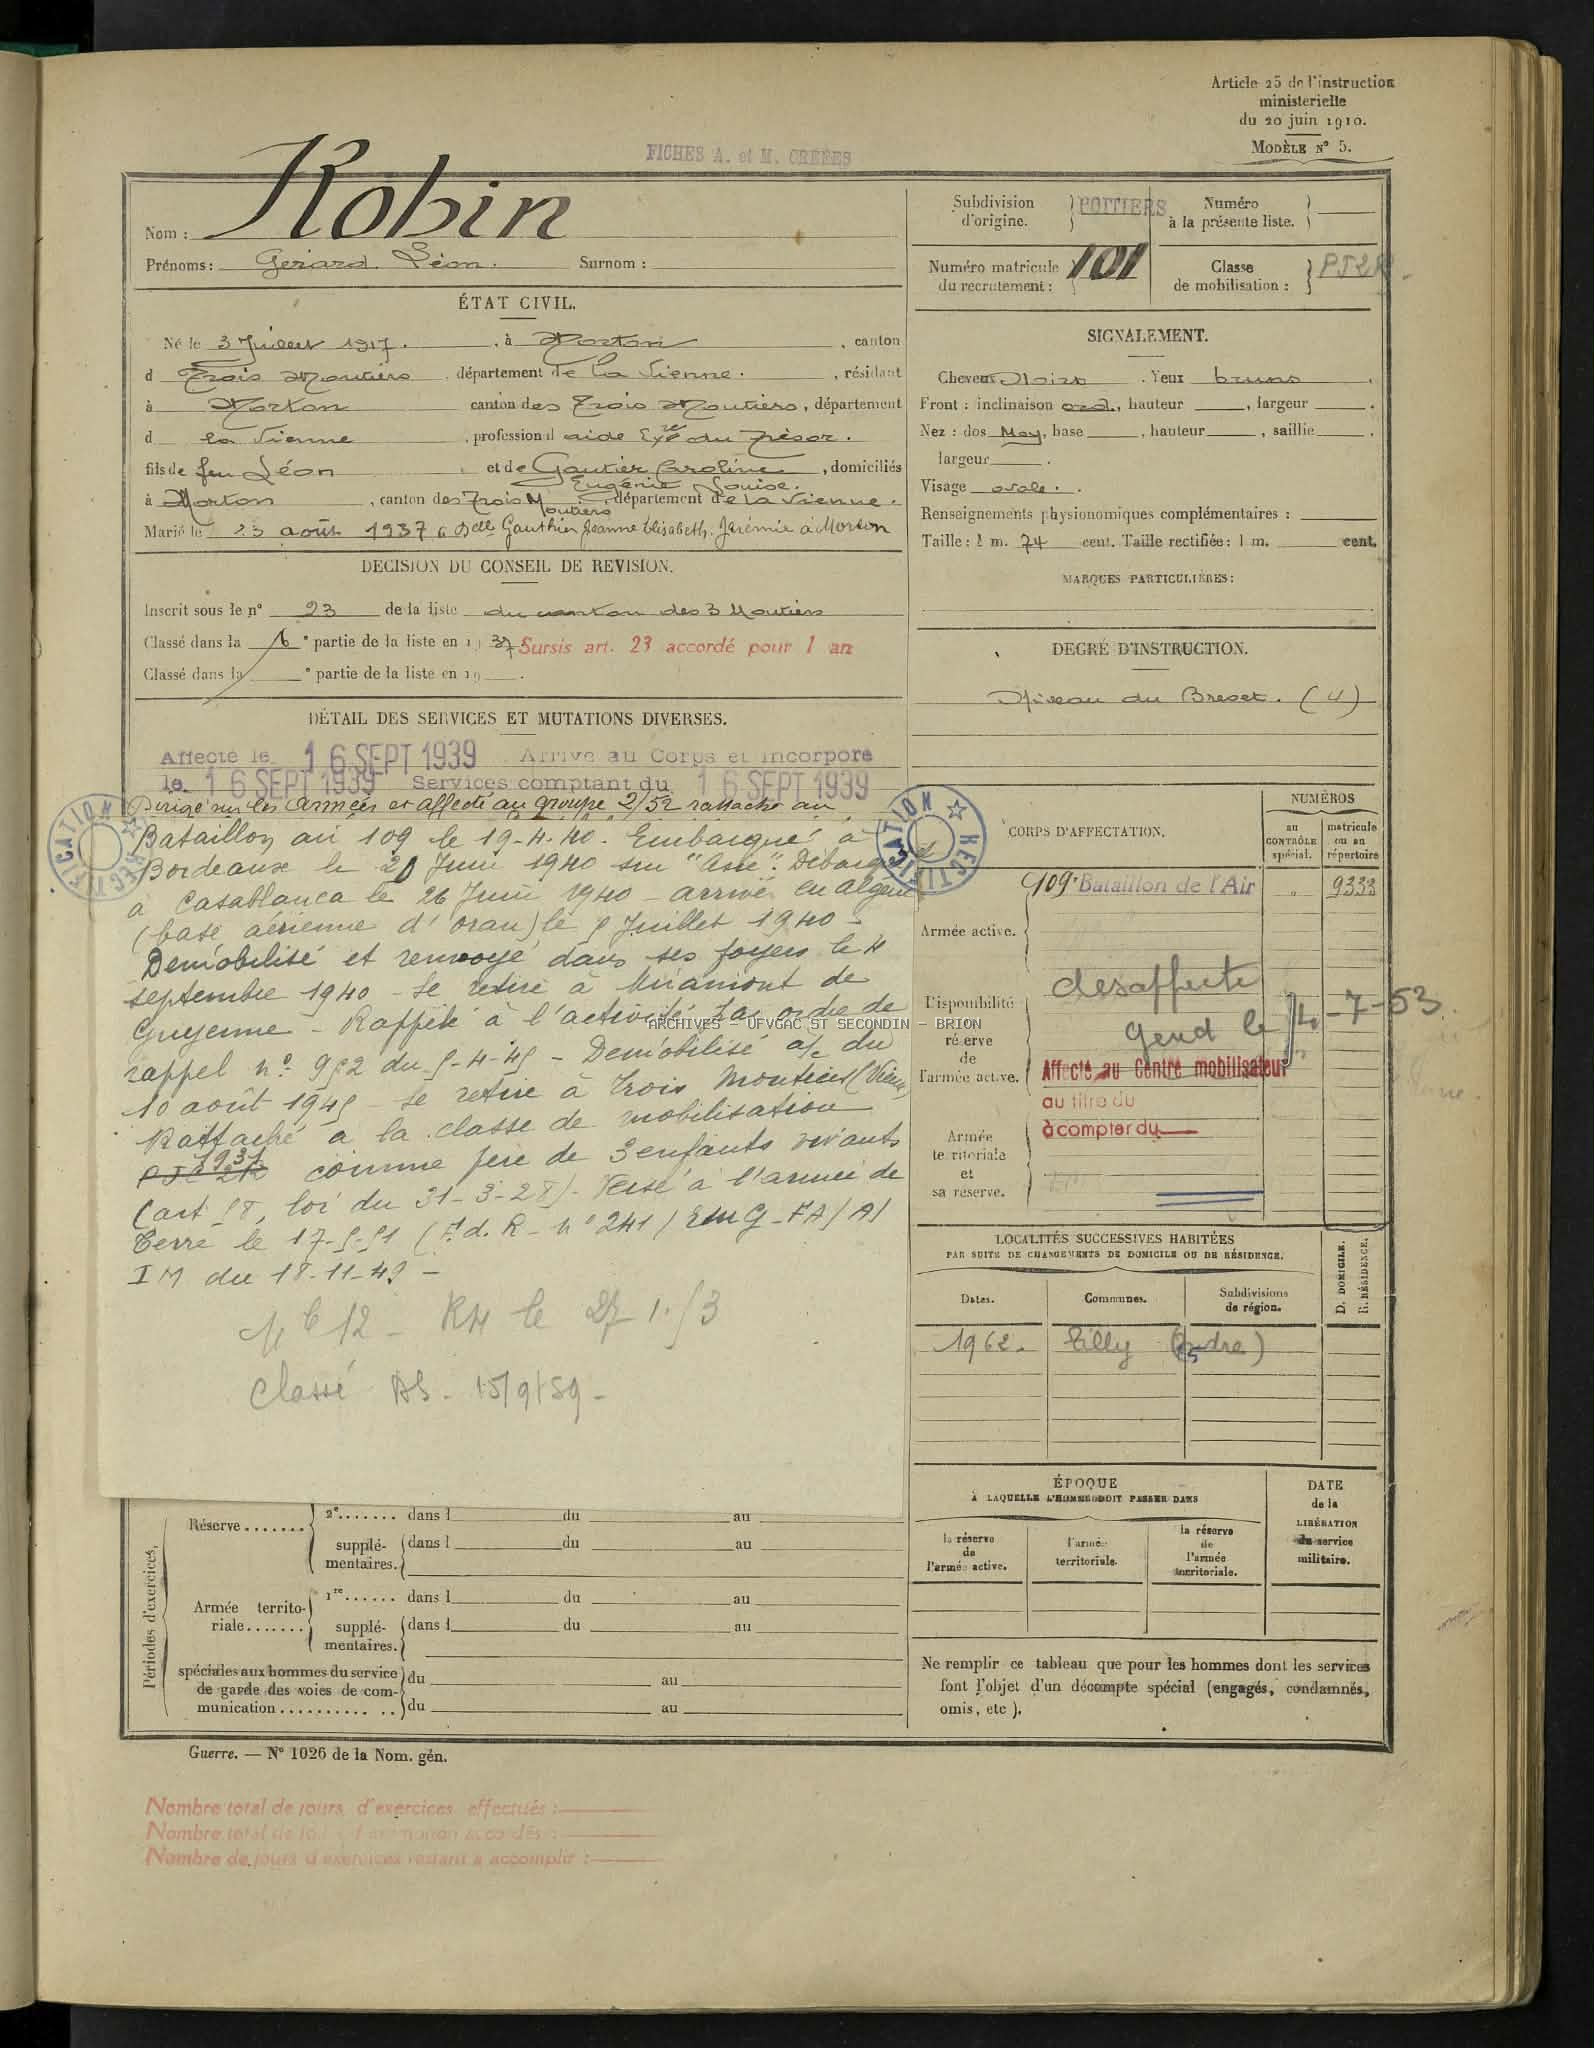 Article 25 de l'instruction
ministerielle
du 20 juin 1910.
MODÈLE N° 5.
FICHES A. et M. CREEES
Nom : Robin
Prénoms : Gérard Léon. Surnom :
Subdivision d'origine. POITIERS
Numéro à la présente liste.
Numéro matricule du recrutement : 101
Classe de mobilisation :
ÉTAT CIVIL.
Né le 3 Juillet 1917. , à Morton , canton
d Trois Moutiers , département de la Vienne. , résidant
à Morton canton des Trois Moutiers, département
d la Vienne , profession d aide Exre du Trésor.
fils de feu Léon et de Gautier Caroline , domiciliés
Eugénie Louise.
à Morton , canton des Trois Moutiers , département de la Vienne.
Marié le 23 août 1937 à Dlle Gauthier Jeanne Elisabeth Jérémie à Morton
SIGNALEMENT.
Cheveux Noirs . Yeux bruns .
Front : inclinaison ord., hauteur , largeur .
Nez : dos Moy, base , hauteur , saillie ,
largeur .
Visage ovale.
Renseignements physionomiques complémentaires :
Taille : 1 m. 74 cent. Taille rectifiée : 1 m. cent.
MARQUES PARTICULIÈRES :
DECISION DU CONSEIL DE REVISION.
Inscrit sous le n° 23 de la liste du canton des 3 Moutiers
Classé dans la ° partie de la liste en 1937 Sursis art. 23 accordé pour 1 an
Classé dans la ° partie de la liste en 19 .
DEGRÉ D'INSTRUCTION.
Niveau du Brevet. (4)
DÉTAIL DES SERVICES ET MUTATIONS DIVERSES.
Affecté le 16 SEPT 1939 Arrivé au Corps et incorporé
le 16 SEPT 1939 Services comptant du 16 SEPT 1939
Dirigé sur les armées et affecté au groupe 2/52 rattaché au
Bataillon air 109 le 19-4-40. Embarqué à
Bordeaux le 20 Juin 1940 sur "Asie". Débarqué
à Casablanca le 26 Juin 1940 - arrivé en Algérie
(base aérienne d'Oran) le 5 Juillet 1940 -
Démobilisé et renvoyé dans ses foyers le 4
septembre 1940 - Se retire à Miramont de
Guyenne - Rappelé à l'activité par ordre de
rappel n° 952 du 5-4-45 - Démobilisé a/c du
10 août 1945 - Se retire à Trois Moutiers (Vienne)
Rattaché à la classe de mobilisation
1931
comme père de 3 enfants vivants
(art 58, loi du 31-3-28). Versé à l'armée de
Terre le 17-5-51 (F.d.R - n° 241) EMG-FA/A/
IM du 18-11-49 -
RM le 27 1.53
Classé AS - 15/9/59 -
RECTIFICATION
RECTIFICATION
CORPS D'AFFECTATION.
NUMÉROS
au CONTRÔLE spécial.
matricule ou au répertoire
Armée active.
109e Bataillon de l'Air " 9338
Disponibilité et réserve de l'armée active.
désaffecté
Gend le 14-7-53
Affecté au Centre mobilisateur
au titre du
à compter du
Armée territoriale et sa réserve.
ARCHIVES - UFVGAC ST SECONDIN - BRION
LOCALITÉS SUCCESSIVES HABITÉES
PAR SUITE DE CHANGEMENTS DE DOMICILE OU DE RÉSIDENCE.
D. DOMICILE.
R. RÉSIDENCE.
Dates. Communes. Subdivisions de région.
1962. Tilly (Indre)
ÉPOQUE
À LAQUELLE L'HOMME DOIT PASSER DANS
la réserve de l'armée active.
l'armée territoriale.
la réserve de l'armée territoriale.
DATE de la LIBÉRATION du service militaire.
Périodes d'exercices.
Réserve....... 2e....... dans l du au
supplémentaires. dans l du au
Armée territoriale....... 1re...... dans l du au
supplémentaires. dans l du au
spéciales aux hommes du service de garde des voies de communication
du au
du au
Ne remplir ce tableau que pour les hommes dont les services
font l'objet d'un décompte spécial (engagés, condamnés,
omis, etc ).
Guerre. — N° 1026 de la Nom. gén.
Nombre total de jours d'exercices effectués :
Nombre total de
Nombre de jours d'exercices restant à accomplir :